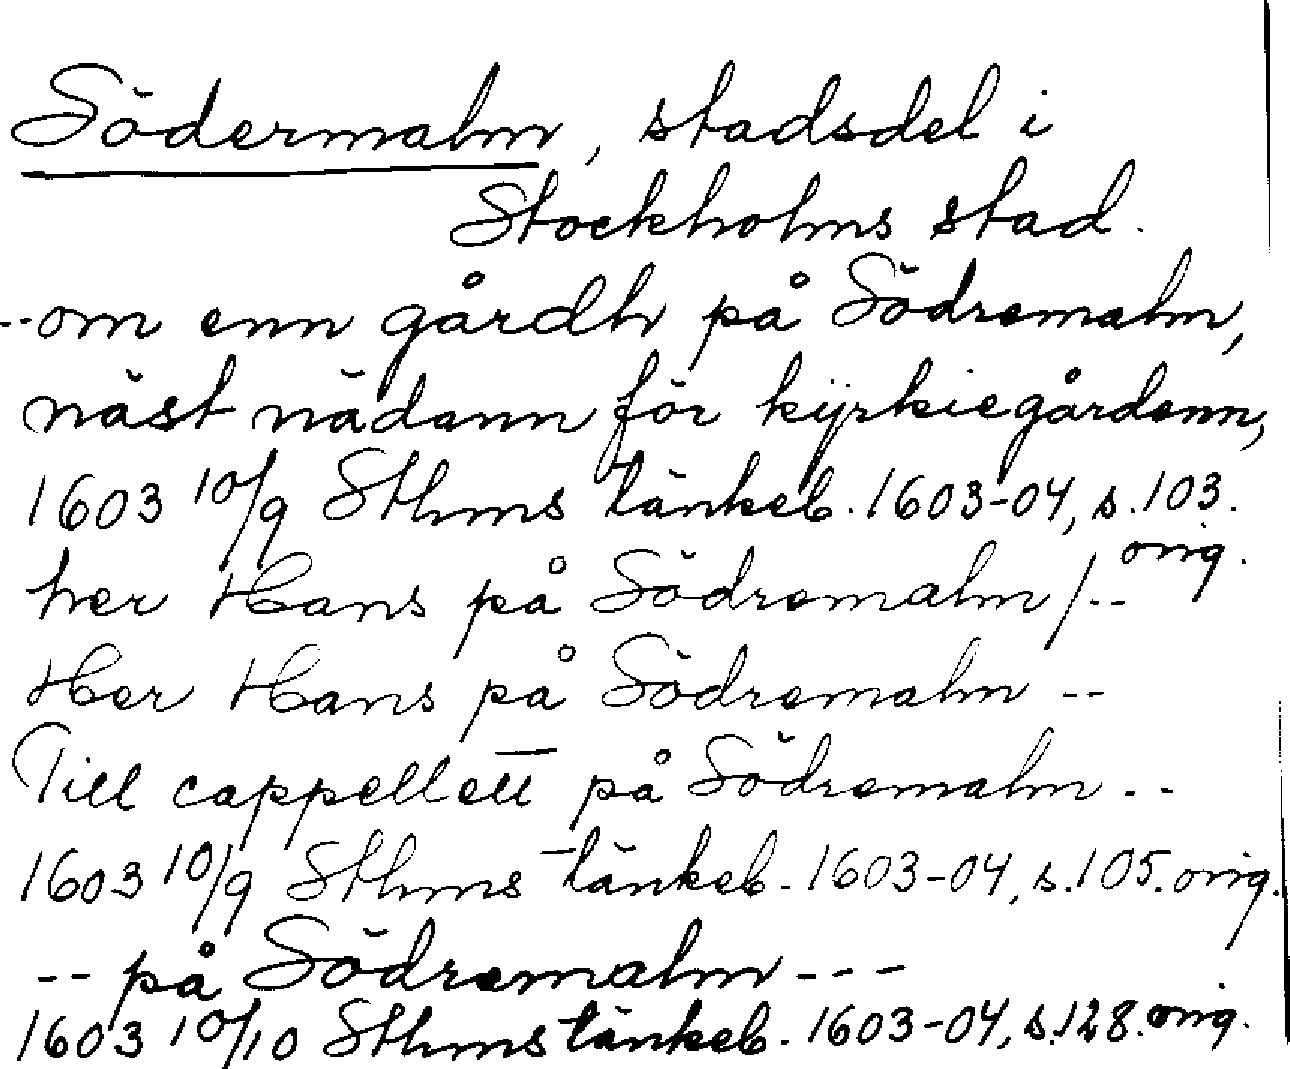 Södermalm, stadsdel i
Stockholms stad.
--om enn gårdh på Södremalm,
näst nädann för kÿrkiegårdenn,
1603 10/9 Sthms tänkeb. 1603-04, s. 103.
orig.
her Hans på Södremalm /--
Her Hans på Södremalm --
Till cappellett på Södremalm --
1603 10/9 Sthms tänkeb. 1603-04, s. 105. orig.
-- på Södremalm ---
1603 10/10 Sthms tänkeb. 1603-04, s. 128. orig.